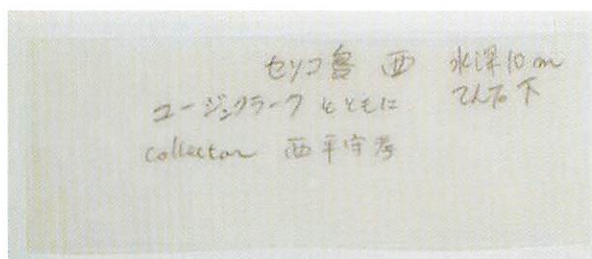 セソコ島 西 水深10m
ユージンクラークとともに てん石下
collector 西平守孝